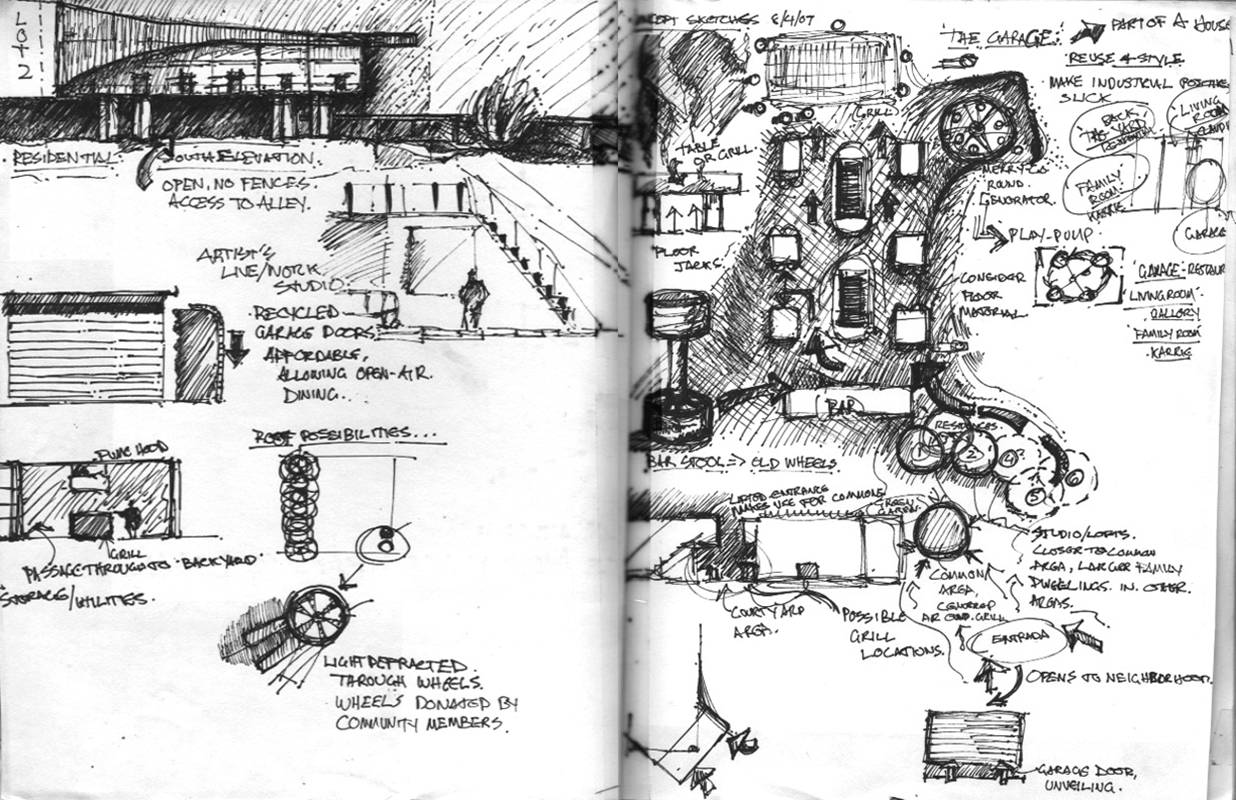 LOT 2
RESIDENTIAL.
SOUTH ELEVATION.
OPEN, NO FENCES.
ACCESS TO ALLEY.
ARTIST'S
LIVE/WORK
STUDIO
RECYCLED
GARAGE DOORS
AFFORDABLE,
ALLOWING OPEN-AIR
DINING.
FUME HOOD
GRILL
PASSAGE THROUGH TO "BACKYARD"
STORAGE/UTILITIES.
ROOF POSSIBILITIES...
LIGHT DEFRACTED
THROUGH WHEELS.
WHEELS DONATED BY
COMMUNITY MEMBERS.
SKETCHES 8/4/07
GRILL
TABLE
OR GRILL.
FLOOR
JACKS.
BAR
BAR STOOL => OLD WHEELS.
"THE GARAGE"
PART OF A HOUSE
REUSE & STYLE
MAKE INDUSTRIAL
SLICK
BACK
YARD
LIVING
ROOM
FAMILY
ROOM
KARRIS
GARAGE
MERRY-GO
ROUND
GENORATOR.
PLAY-PUMP
CONSIDER
FLOOR
MATERIAL.
"GARAGE"-RESTAUR
LIVINGROOM"
GALLORY
"FAMILY ROOM"
KARRIS
RESIDENCES
1
2
4
5
6
LIFTED ENTRANCE
MAKES USE FOR COMMONS
GREEN
COURTYARD
AREA.
POSSIBLE
GRILL
LOCATIONS.
COMMON
AREA,
CENTERED
GRILL
STUDIO/LOFTS.
CLOSER TO COMMON
AREA, LARGER FAMILY
DWELLINGS IN OTHER
AREAS.
ENTRADA
OPENS TO NEIGHBORHOOD.
GARAGE DOOR,
UNVEILING.